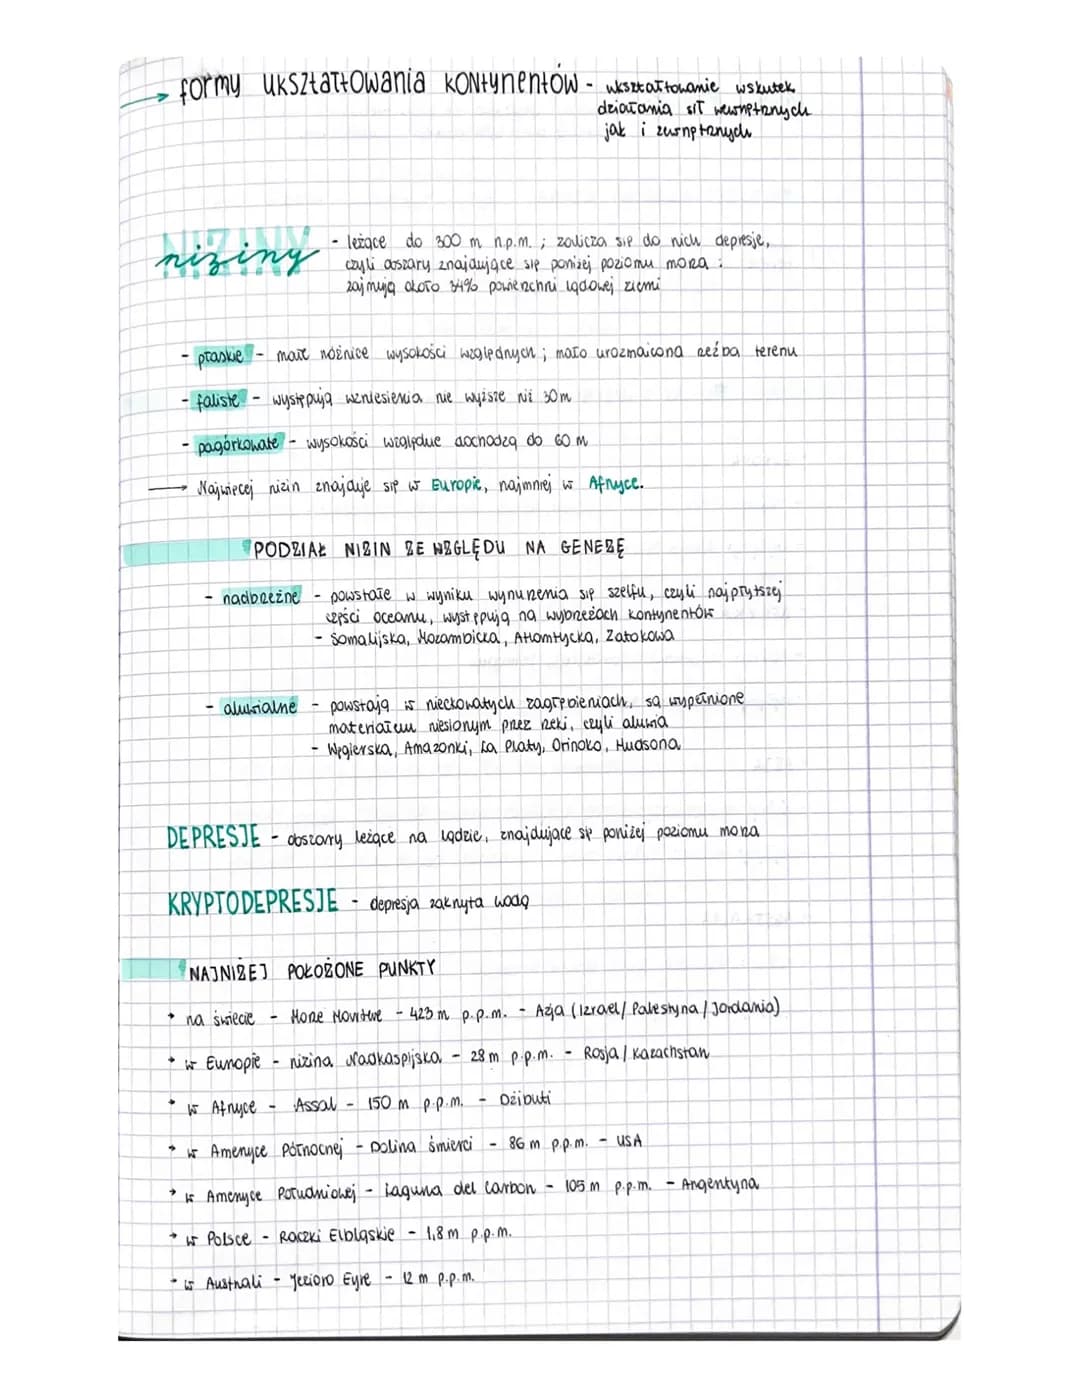 → formy ukształtowania kontynentów - ukształtowanie wskutek
działania sił wewnętrznych
jak i zewnętrznych
NIZINY
niziny - leżące do 300 m n.p.m. ; zalicza się do nich depresje,
czyli obszary znajdujące się poniżej poziomu morza ;
zajmują około 34% powierzchni lądowej ziemi
- płaskie - małe różnice wysokości względnych ; mało urozmaicona rzeźba terenu
- faliste - występują wzniesienia nie wyższe niż 30m
- pagórkowate - wysokości względne dochodzą do 60 m
→ Najwięcej nizin znajduje się w Europie, najmniej w Afryce.
PODZIAŁ NIZIN ZE WZGLĘDU NA GENEZĘ
- nadbrzeżne - powstałe w wyniku wynurzenia się szelfu, czyli najpłytszej
części oceanu, występują na wybrzeżach kontynentów
- Somalijska, Mozambicka, Atlantycka, Zatokowa
- aluwialne - powstają w nieckowatych zagłębieniach, są wypełnione
materiałem niesionym przez rzeki, czyli aluwia
- Węgierska, Amazonki, La Platy, Orinoko, Hudsona
DEPRESJE - obszary leżące na lądzie, znajdujące się poniżej poziomu morza
KRYPTODEPRESJE - depresja zakryta wodą
NAJNIŻEJ POŁOŻONE PUNKTY
* na świecie - Morze Martwe - 423 m p.p.m. - Azja (Izrael / Palestyna / Jordania)
* w Europie - nizina Nadkaspijska - 28 m p.p.m. - Rosja / Kazachstan
* w Afryce - Assal - 150 m p.p.m. - Dżibuti
* w Ameryce Północnej - Dolina śmierci - 86 m p.p.m. - USA
* w Ameryce Południowej - Laguna del Carbon - 105 m p.p.m. - Argentyna
* w Polsce - Raczki Elbląskie - 1,8 m p.p.m.
* w Australi - Jezioro Eyre - 12 m p.p.m.